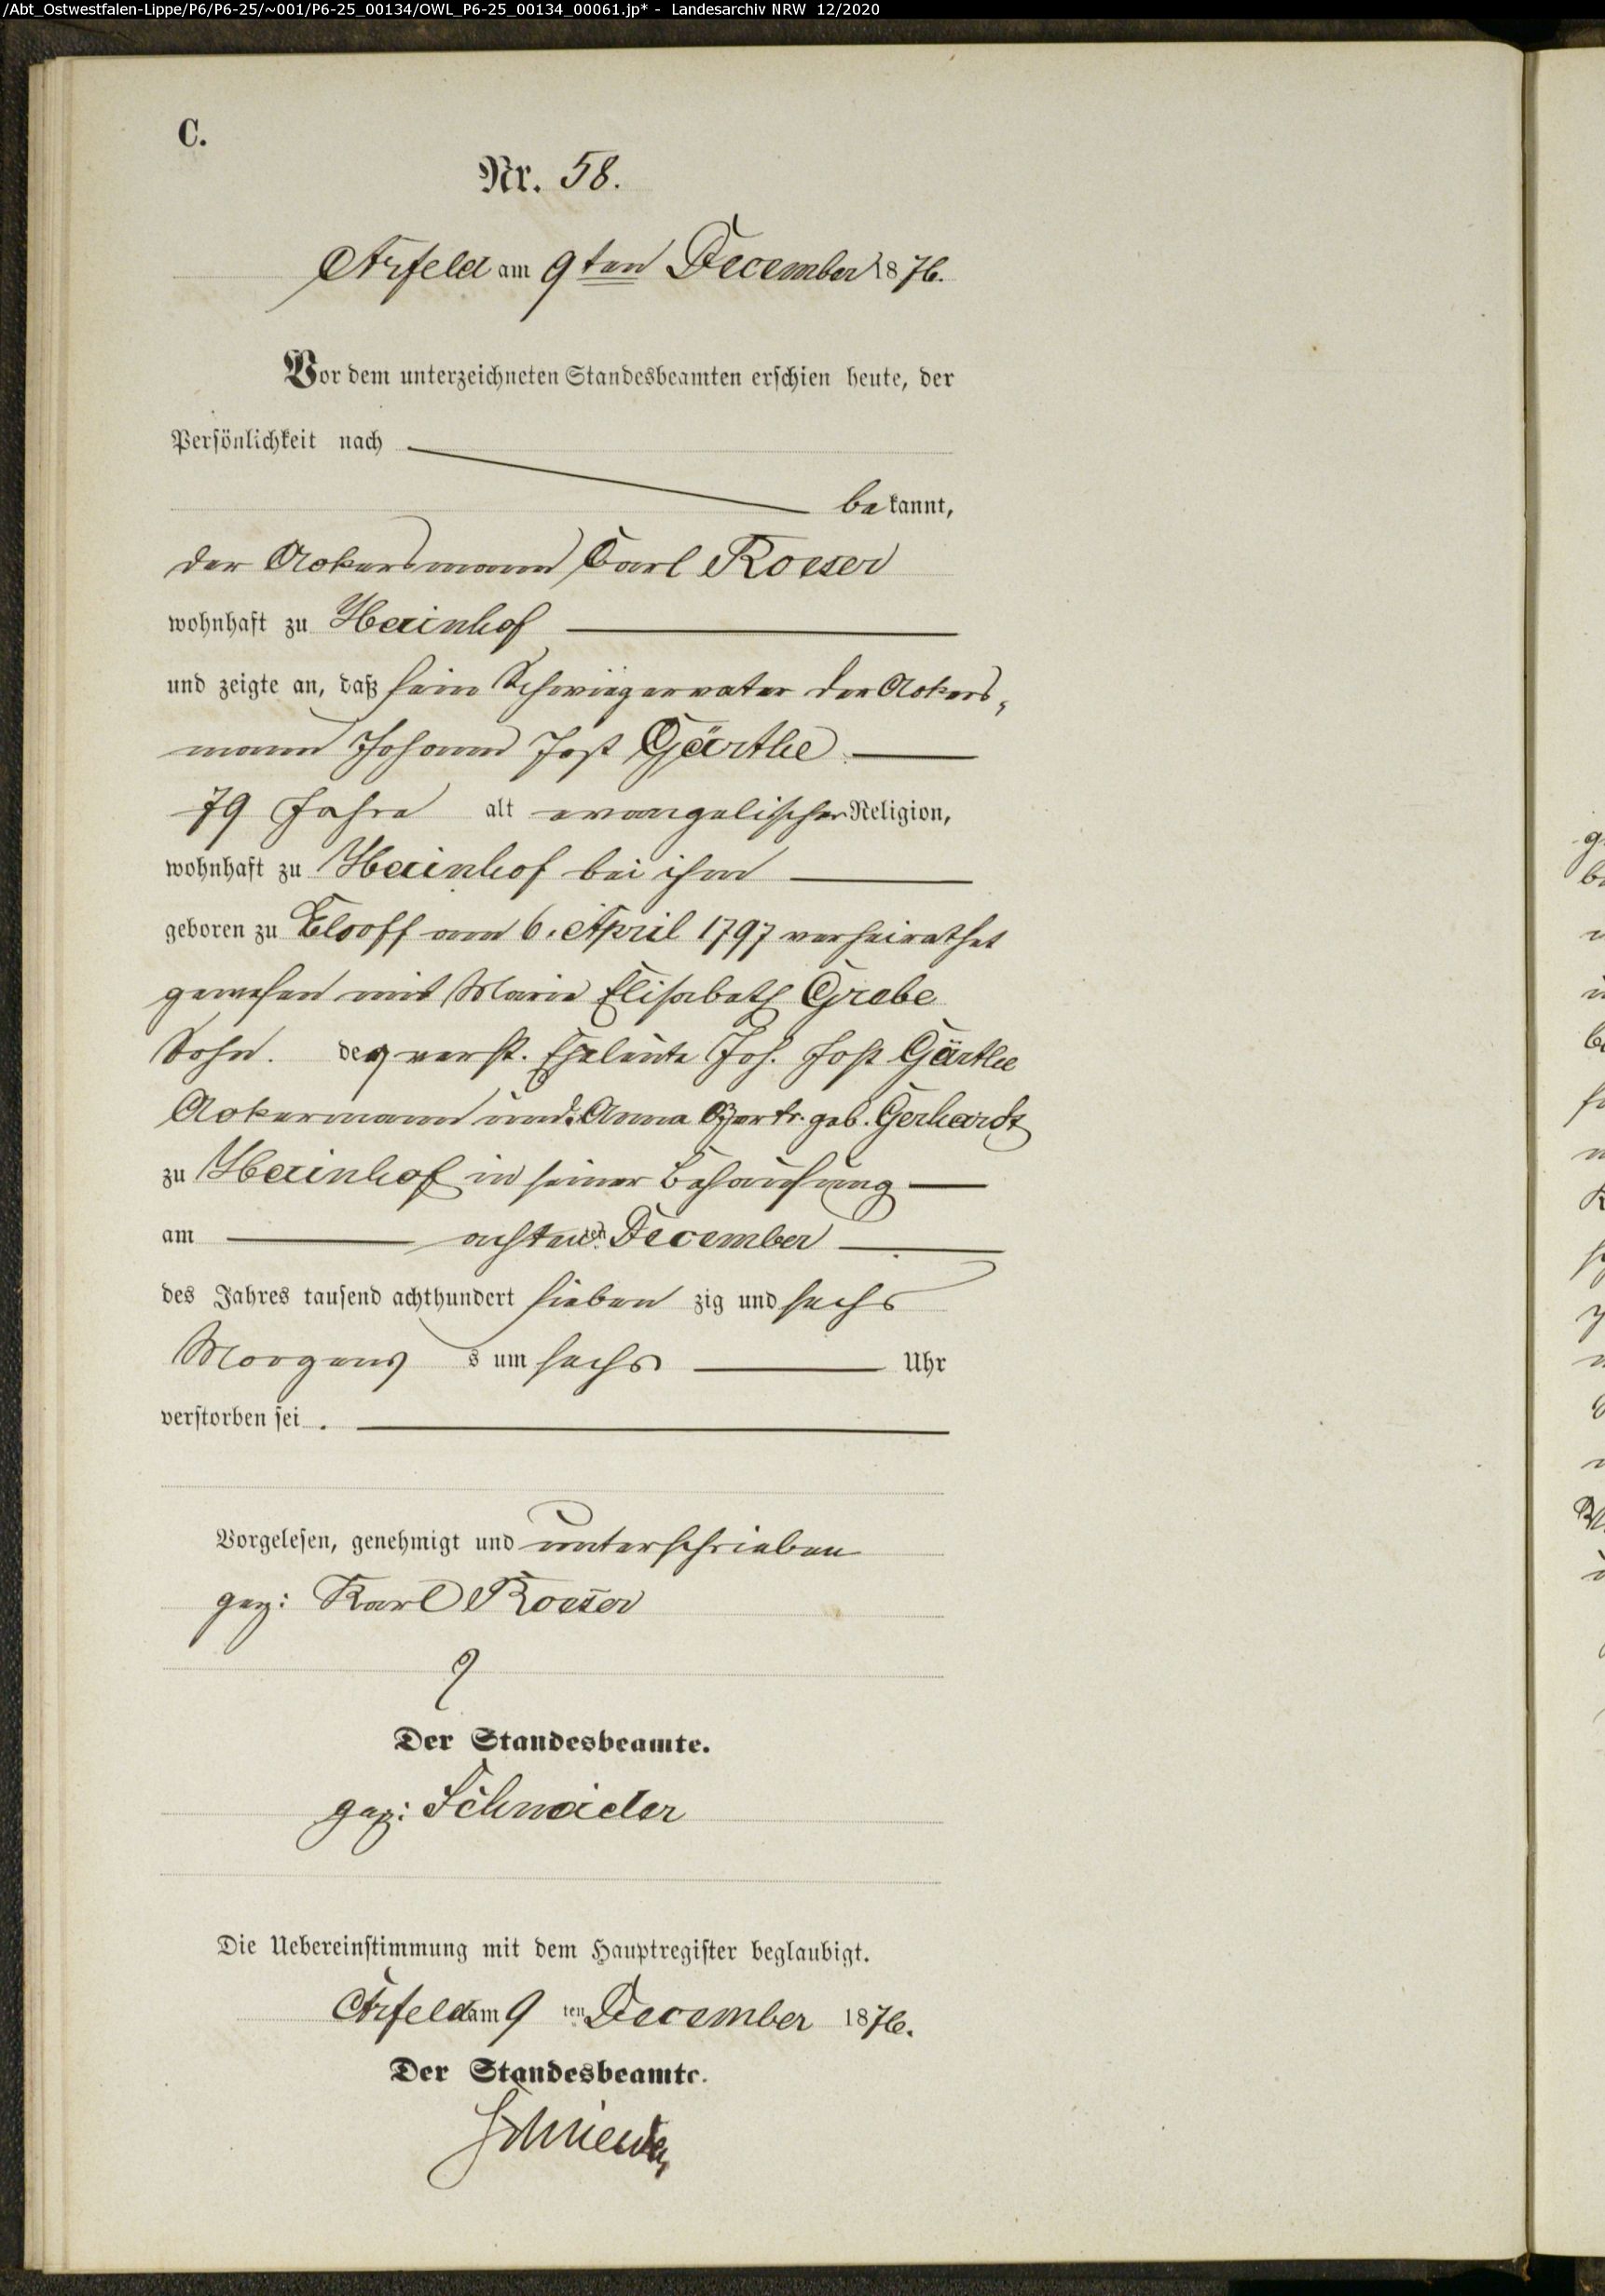 /Abt_Ostwestfalen-Lippe/P6/P6-25/~001/P6-25_00134/OWL_P6-25_00134_00061.jp* - Landesarchiv NRW 12/2020
C.
Nr. 58.
Arfeld am 9ten December 1876.
Vor dem unterzeichneten Standesbeamten erschien heute, der
Persönlichkeit nach
bekannt,
der Ackersmann Carl Roeser
wohnhaft zu Hainhof
und zeigte an, daß sein Schwiegervater der Ackers-
mann Johann Jost Gärthe
79 Jahre alt evangelischer Religion,
wohnhaft zu Hainhof bei ihm
geboren zu Elsoff am 6. April 1797 verheirathet
gewesen mit Marie Elisabeth Grebe
Sohn. der verst. Eheleute Joh. Jost Gärthe
Ackermann und Anna Gertr. geb. Gerhardt
zu Hainhof in seiner Behausung
am achten ten December
des Jahres tausend achthundert sieben zig und sechs
Morgens s um sechs Uhr
verstorben sei.
Vorgelesen, genehmigt und unterschrieben
gez: Karl Roeser
Der Standesbeamte.
gez: Schneider
Die Uebereinstimmung mit dem Hauptregister beglaubigt.
Arfeld am 9 ten December 1876.
Der Standesbeamte.
Schneider